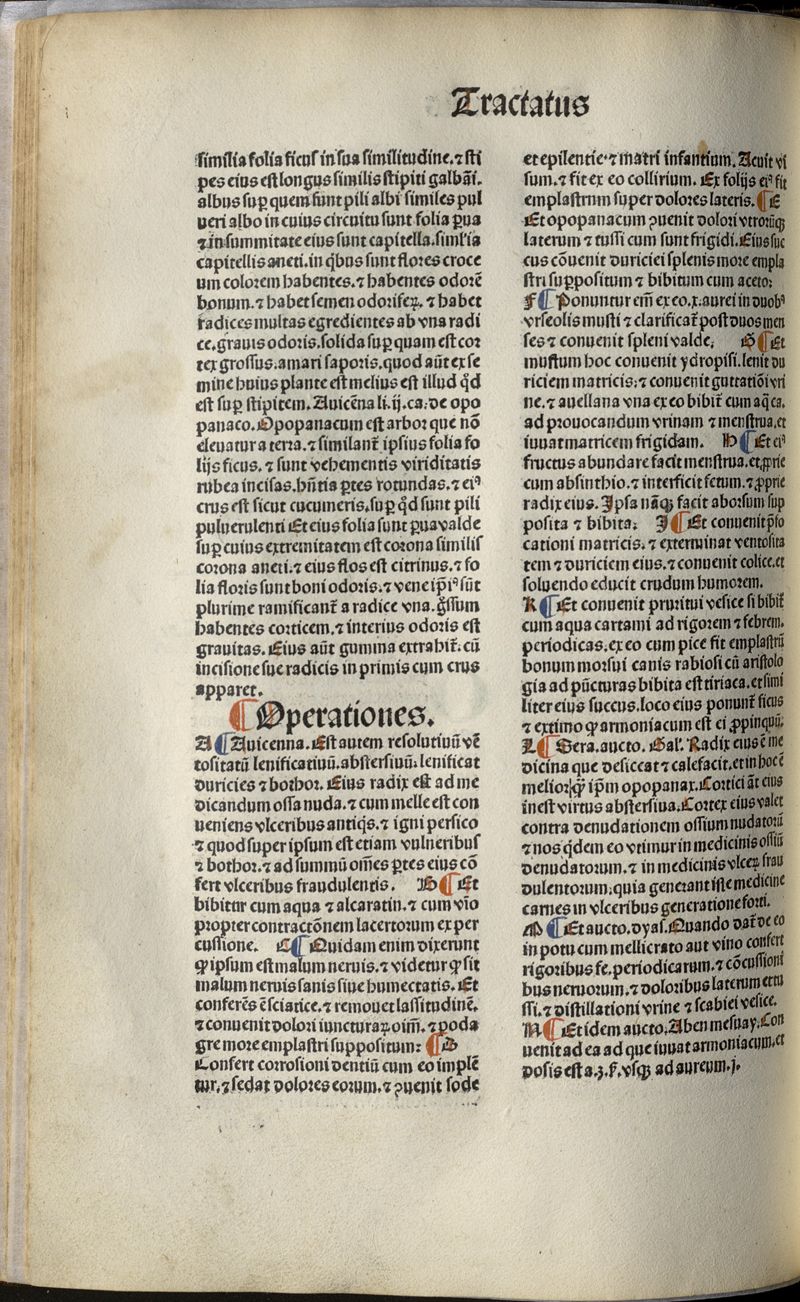 Tractatus
similia folia ficus in sua similitudine. ⁊ sti
pes eius est longus similis stipiti galbāi.
albus sup̱ quem sunt pili albi similes pul
ueri albo in cuius circuitu sunt folia p̱ua
⁊ in summitate eius sunt capitella. simlʼia
capitellis aneti. in q̇bus sunt flores croce
um colorem habentes. ⁊ habentes odorē
bonum. ⁊ habet semen odoriferꝝ. ⁊ habet
radices multas egredientes ab vna radi
ce. grauis odoris. solida sup̱ quam est cor
tex grossus. amari saporis. quod aūt ex se
mine huius plante est melius est illud qḋ
est sup̱ stipitem. Auicēna li. ij. ca. de opo
panaco. Opopanacum est arbor que nō
eleuatur a terra. ⁊ similant̃ ipsius folia fo
lijs ficus. ⁊ sunt vehementis viriditatis
rubea incisas. hn̄tia p̱tes rotundas. ⁊ eiꝰ
crus est sicut cucumeris. sup̱ qḋ sunt pili
puluerulenti Et eius folia sunt p̱ua valde
sup̱ cuius extremitatem est corona similis
corona aneti. ⁊ eius flos est citrinus. ⁊ fo
lia floris sunt boni odoris. ⁊ vene ip̄iꝰ sūt
plurime ramificant̃ a radice vna. g̊ssum
habentes corticem. ⁊ interius odoris est
grauitas. Eius aūt gumma extrahit̃. cū
incisione sue radicis in primis cum crus
apparet.
¶Operationes.
A ¶Auicenna. Est autem resolutiuū vē
tositatū lenificatiuū. abstersiuū. lenificat
duricies ⁊ bothor. Eius radix est ad me
dicandum ossa nuda. ⁊ cum melle est con
ueniens vlceribus antiq̇s. ⁊ igni persico
⁊ quod super ipsum est etiam vulneribus
⁊ bothor. ⁊ ad summū om̄es p̱tes eius cō
fert vlceribus fraudulentis. B ¶Et
bibitur cum aqua ⁊ alcaratin. ⁊ cum vīo
propter contractōnem lacertorum ex per
cussione. C ¶Quidam enim dixerunt
ꝙ ipsum est malum neruis. ⁊ videtur ꝙ sit
malum neruis sanis siue humectatis. Et
conferēs ē sciatice. ⁊ remouet lassitudinē.
⁊ conuenit dolori iuncturaꝝ oīm̄. ⁊ poda
gre more emplastri suppositum: ¶D
Confert corrosioni dentiū cum eo implē
tur. ⁊ sedat dolores eorum. ⁊ ꝯuenit sode
et epilentie ⁊ matri infantium. Acuit vi
sum. ⁊ fit ex eo collirium. Ex folijs eiꝰ fit
emplastrum super dolores lateris. ¶E
Et opopanacum ꝯuenit dolori vtrorūqꝫ
laterum ⁊ tussi cum sunt frigidi. Eius suc
cus cōuenit duriciei splenis more empla
stri sup̱positum ⁊ bibitum cum aceto:
F ¶Ponuntur em̄ ex eo. x. aurei in duobꝰ
vrseolis musti ⁊ clarificat̃ post duos men
ses ⁊ conuenit spleni valde. G ¶Et
mustum hoc conuenit ydropisi. lenit du
riciem matricis: ⁊ conuenit guttatiōi vri
ne. ⁊ auellana vna ex eo bibit̃ cum aq̄ ca.
ad prouocandum vrinam ⁊ menstrua. et
iuuat matricem frigidam. H ¶Et eiꝰ
fructus abundare facit menstrua. et ꝓprie
cum absinthio. ⁊ interficit fetum. ⁊ ꝓprie
radix eius. Ipsa nāqꝫ facit aborsum sup
posita ⁊ bibita: I ¶Et conuenit p̄fo
cationi matricis. ⁊ exterminat ventosita
tem ⁊ duriciem eius. ⁊ conuenit colice. et
soluendo educit crudum humorem.
K ¶Et conuenit pruritui vesice si bibit̃
cum aqua cartami ad rigorem ⁊ febrem.
periodicas. ex eo cum pice fit emplastrū
bonum morsui canis rabiosi cū aristolo
gia ad pūcturas bibita est tiriaca. et simi
liter eius succus. loco eius ponunt̃ ficus
⁊ extimo ꝙ armoniacum est ei ꝓpinquū.
L ¶Sera. aucto. Gal. Radix eius ē me
dicina que desiccat ⁊ calefacit. et in hoc ē
melior q̃ȝ ip̄m opopanax. Cortici āt eius
inest virtus abstersiua. Cortex eius valet
contra denudationem ossium nudatorū
⁊ nos qḋem eo vtimur in medicinis ossiū
denudatorum. ⁊ in medicinis vlceꝝ frau
dulentorum: quia generant iste medicine
carnes in vlceribus generatione forti.
M ¶Et aucto. dyas. Quando dat̃ de eo
in potu cum mellicrato aut vino confert
rigoribus fe. periodicarum. ⁊ cōcussioni
bus neruorum. ⁊ doloribus laterum et tu
ssi. ⁊ distillationi vrine ⁊ scabiei vesice.
N ¶Et idem aucto. Aben mesuay. Con
uenit ad ea ad que iuuat armoniacum. et
dosis est a. ʒ. ẜ. vsqꝫ ad aureum. j.